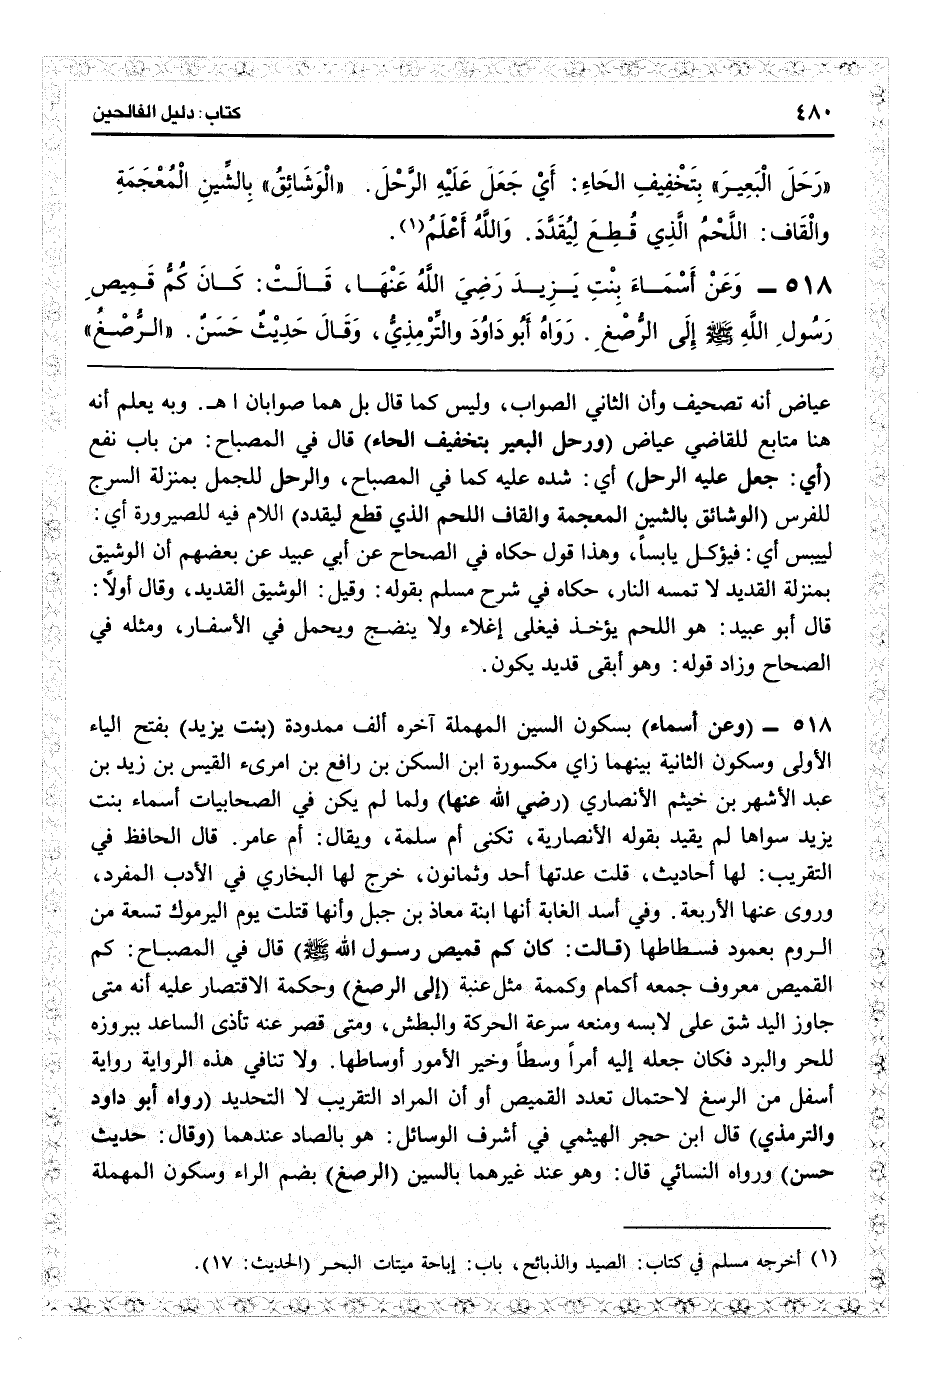 ٤٨٠
كتاب: دليل الفالحين
«رَحَلَ الْبَعِيرَ» بِتَخْفِيفِ الحَاءِ: أَيْ جَعَلَ عَلَيْهِ الرَّحْلَ. «الْوَشَائِقُ» بِالشِّينِ الْمُعْجَمَةِ
والْقَاف: اللَّحْمُ الَّذِي قُطِعَ لِيُقَدَّدَ. وَاللَّهُ أَعْلَمُ(١).
٥١٨ - وَعَنْ أَسْمَاءَ بِنْتِ يَزِيدَ رَضِيَ اللَّهُ عَنْهَا، قَالَتْ: كَانَ كُمُّ قَمِيصِ
رَسُولِ اللَّهِ ﷺ إِلَى الرُّصْغِ. رَوَاهُ أَبُو دَاوُدَ والتِّرْمِذِيُّ، وَقَالَ حَدِيثٌ حَسَنٌ. «الرُّصْغُ»
عياض أنه تصحيف وأن الثاني الصواب، وليس كما قال بل هما صوابان ا هـ. وبه يعلم أنه
هنا متابع للقاضي عياض (ورحل البعير بتخفيف الحاء) قال في المصباح: من باب نفع
(أي: جعل عليه الرحل) أي: شده عليه كما في المصباح، والرحل للجمل بمنزلة السرج
للفرس (الوشائق بالشين المعجمة والقاف اللحم الذي قطع ليقدد) اللام فيه للصيرورة أي:
لييبس أي: فيؤكل يابساً، وهذا قول حكاه في الصحاح عن أبي عبيد عن بعضهم أن الوشيق
بمنزلة القديد لا تمسه النار، حكاه في شرح مسلم بقوله: وقيل: الوشيق القديد، وقال أولاً:
قال أبو عبيد: هو اللحم يؤخذ فيغلى إغلاء ولا ينضج ويحمل في الأسفار، ومثله في
الصحاح وزاد قوله: وهو أبقى قديد يكون.
٥١٨ - (وعن أسماء) بسكون السين المهملة آخره ألف ممدودة (بنت يزيد) بفتح الياء
الأولى وسكون الثانية بينهما زاي مكسورة ابن السكن بن رافع بن امرىء القيس بن زيد بن
عبد الأشهر بن خيثم الأنصاري (رضي الله عنها) ولما لم يكن في الصحابيات أسماء بنت
يزيد سواها لم يقيد بقوله الأنصارية، تكنى أم سلمة، ويقال: أم عامر. قال الحافظ في
التقريب: لها أحاديث، قلت عدتها أحد وثمانون، خرج لها البخاري في الأدب المفرد،
وروى عنها الأربعة. وفي أسد الغابة أنها ابنة معاذ بن جبل وأنها قتلت يوم اليرموك تسعة من
الروم بعمود فسطاطها (قالت: كان كم قميص رسول الله ﷺ) قال في المصباح: كم
القميص معروف جمعه أكمام وكممة مثل عنبة (إلى الرصغ) وحكمة الاقتصار عليه أنه متى
جاوز اليد شق على لابسه ومنعه سرعة الحركة والبطش، ومتى قصر عنه تأذى الساعد ببروزه
للحر والبرد فكان جعله إليه أمراً وسطاً وخير الأمور أوساطها. ولا تنافي هذه الرواية رواية
أسفل من الرسغ لاحتمال تعدد القميص أو أن المراد التقريب لا التحديد (رواه أبو داود
والترمذي) قال ابن حجر الهيثمي في أشرف الوسائل: هو بالصاد عندهما (وقال: حديث
حسن) ورواه النسائي قال: وهو عند غيرهما بالسين (الرصغ) بضم الراء وسكون المهملة
(١) أخرجه مسلم في كتاب: الصيد والذبائح، باب: إباحة ميتات البحر (الحديث: ١٧).